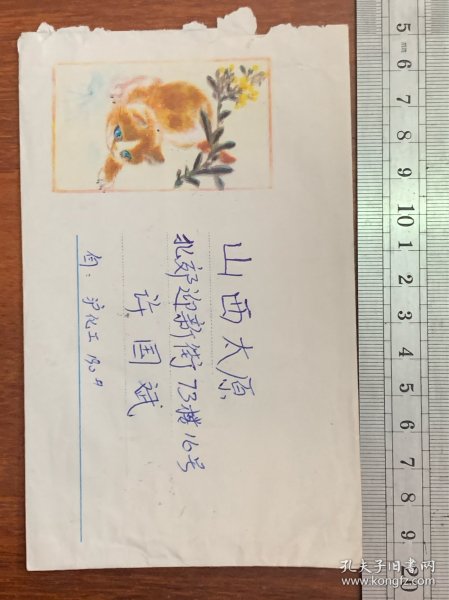 山西太原
北郊迎新街73楼16号
许国斌
5 mm 6 7 8 9 10 1 2 3 4 5 6 7 8 9 20
孔夫子旧书网
www.kongfz.com